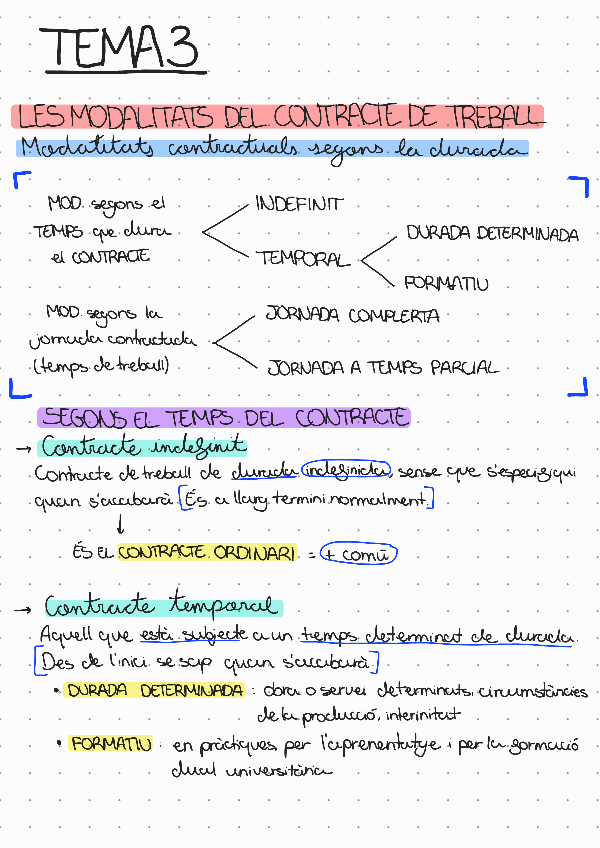 TEMA 3
LES MODALITATS DEL CONTRACTE DE TREBALL
Modalitats contractuals segons la durada
MOD. segons el
TEMPS que dura
el CONTRACTE
INDEFINIT
TEMPORAL
DURADA DETERMINADA
FORMATIU
MOD. segons la
jornada contractada
(temps de treball)
JORNADA COMPLERTA
JORNADA A TEMPS PARCIAL
SEGONS EL TEMPS DEL CONTRACTE
→ Contracte indefinit
Contracte de treball de durada indefinida, sense que s'especifiqui
quan s'acabarà. [És a llarg termini normalment.]
↓
ÉS EL CONTRACTE ORDINARI = + comú
→ Contracte temporal
Aquell que està subjecte a un temps determinat de durada.
[Des de l'inici se sap quan s'acabarà.]
• DURADA DETERMINADA : obra o servei determinats, circumstàncies
de la producció, interinitat
• FORMATIU : en pràctiques, per l'aprenentatge i per la formació
dual universitària